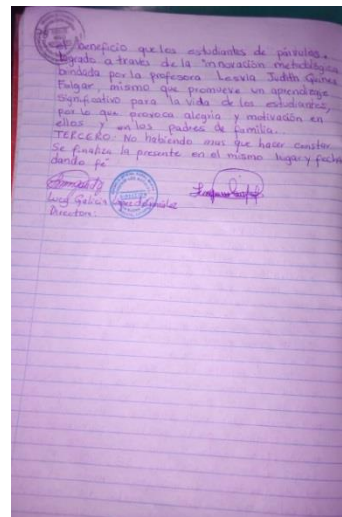 el beneficio que los estudiantes de párvulos,
logrado a través de la Innovación metodológica
brindada por la profesora Lesvia Judith
Fulgar, mismo que promueve un aprendizaje
significativo para la vida de los estudiantes,
por lo que provoca alegría y motivación en
ellos y en los padres de familia.
TERCERO: No habiendo mas que hacer constar
Se finaliza la presente en el mismo lugar y fecha
dando fé
Lucy Galicia
Directora.